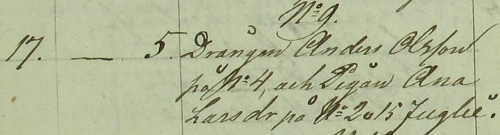 No 9.
17. — 5. Drängen Anders Olsson
på No 4, och Pigan Ana
Larsdr på No 2 o 15